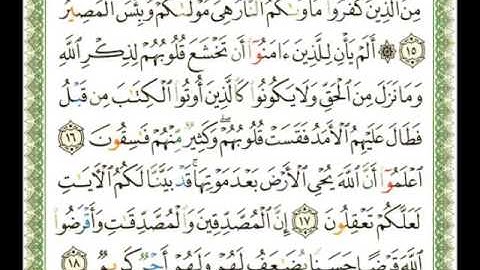 مِنَ الَّذِينَ كَفَرُوا مَأْوَىٰكُمُ النَّارُ هِيَ مَوْلَىٰكُمْ وَبِئْسَ الْمَصِيرُ
١٥ ۞ أَلَمْ يَأْنِ لِلَّذِينَ ءَامَنُوٓا أَن تَخْشَعَ قُلُوبُهُمْ لِذِكْرِ اللَّهِ
وَمَا نَزَلَ مِنَ الْحَقِّ وَلَا يَكُونُوا كَالَّذِينَ أُوتُوا الْكِتَٰبَ مِن قَبْلُ
فَطَالَ عَلَيْهِمُ الْأَمَدُ فَقَسَتْ قُلُوبُهُمْ ۖ وَكَثِيرٌ مِّنْهُمْ فَٰسِقُونَ ١٦
اعْلَمُوٓا أَنَّ اللَّهَ يُحْيِ الْأَرْضَ بَعْدَ مَوْتِهَا ۚ قَدْ بَيَّنَّا لَكُمُ الْءَايَٰتِ
لَعَلَّكُمْ تَعْقِلُونَ ١٧ إِنَّ الْمُصَّدِّقِينَ وَالْمُصَّدِّقَٰتِ وَأَقْرَضُوا
اللَّهَ قَرْضًا حَسَنًا يُضَٰعَفُ لَهُمْ وَلَهُمْ أَجْرٌ كَرِيمٌ ١٨